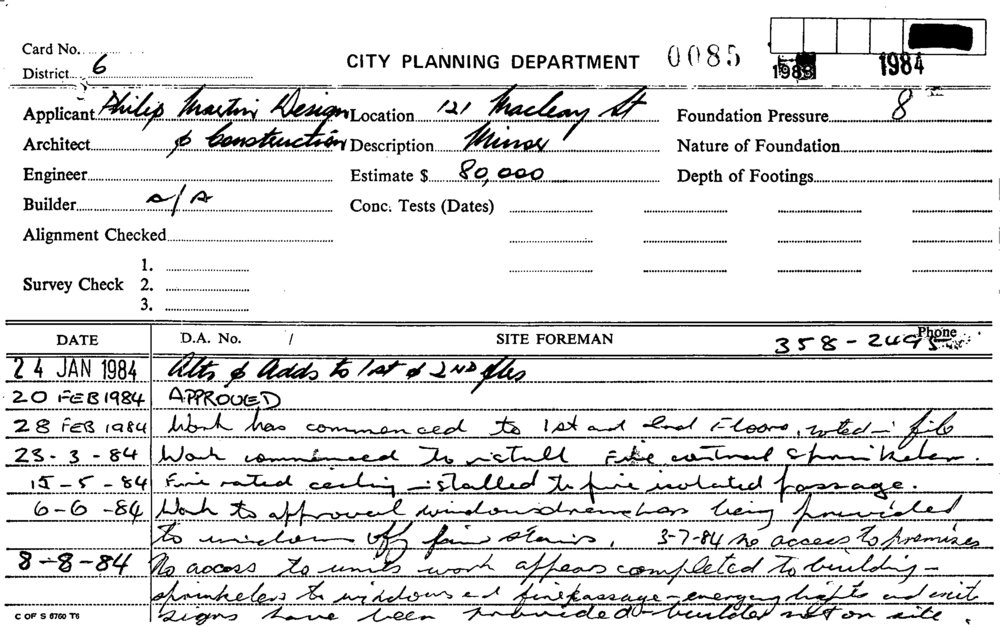 Card No.
District 6
CITY PLANNING DEPARTMENT 0085
1983 1984
Applicant Philip Martin Design Location 121 Macleay St Foundation Pressure 8
Architect & Construction Description Minor Nature of Foundation
Engineer Estimate $ 80,000 Depth of Footings
Builder a/a Conc. Tests (Dates)
Alignment Checked
Survey Check 1.
2.
3.
DATE D.A. No. / SITE FOREMAN 358-2495 Phone
24 JAN 1984 Alts & Adds to 1st & 2ND flrs
20 FEB 1984 APPROVED
28 FEB 1984 Work has commenced to 1st and 2nd Floors, noted in file
23-3-84 Work commenced to install Fire control sprinklers.
15-5-84 Fire rated ceiling installed to fire isolated passage.
6-6-84 Work to approval being provided
to windows off fire stairs. 3-7-84 no access to premises
8-8-84 No access to units work appears completed to building -
sprinkelers to windows and fire passage - emergency lights and exit
signs have been provided - builder not on site.
C OF S 6760 T6